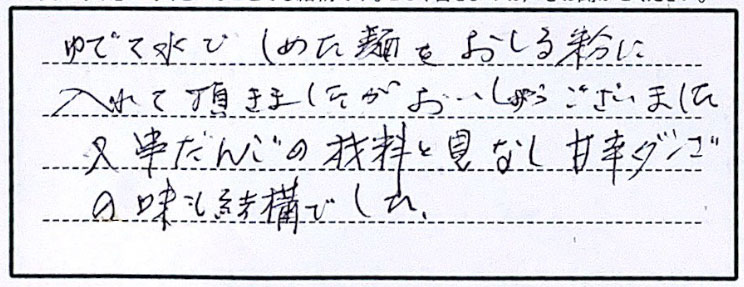 ゆでて水でしめた麺をおしる粉に
入れて頂きましたがおいしゅうございました
又串だんごの材料と見なし甘辛ダンゴ
の味も結構でした。